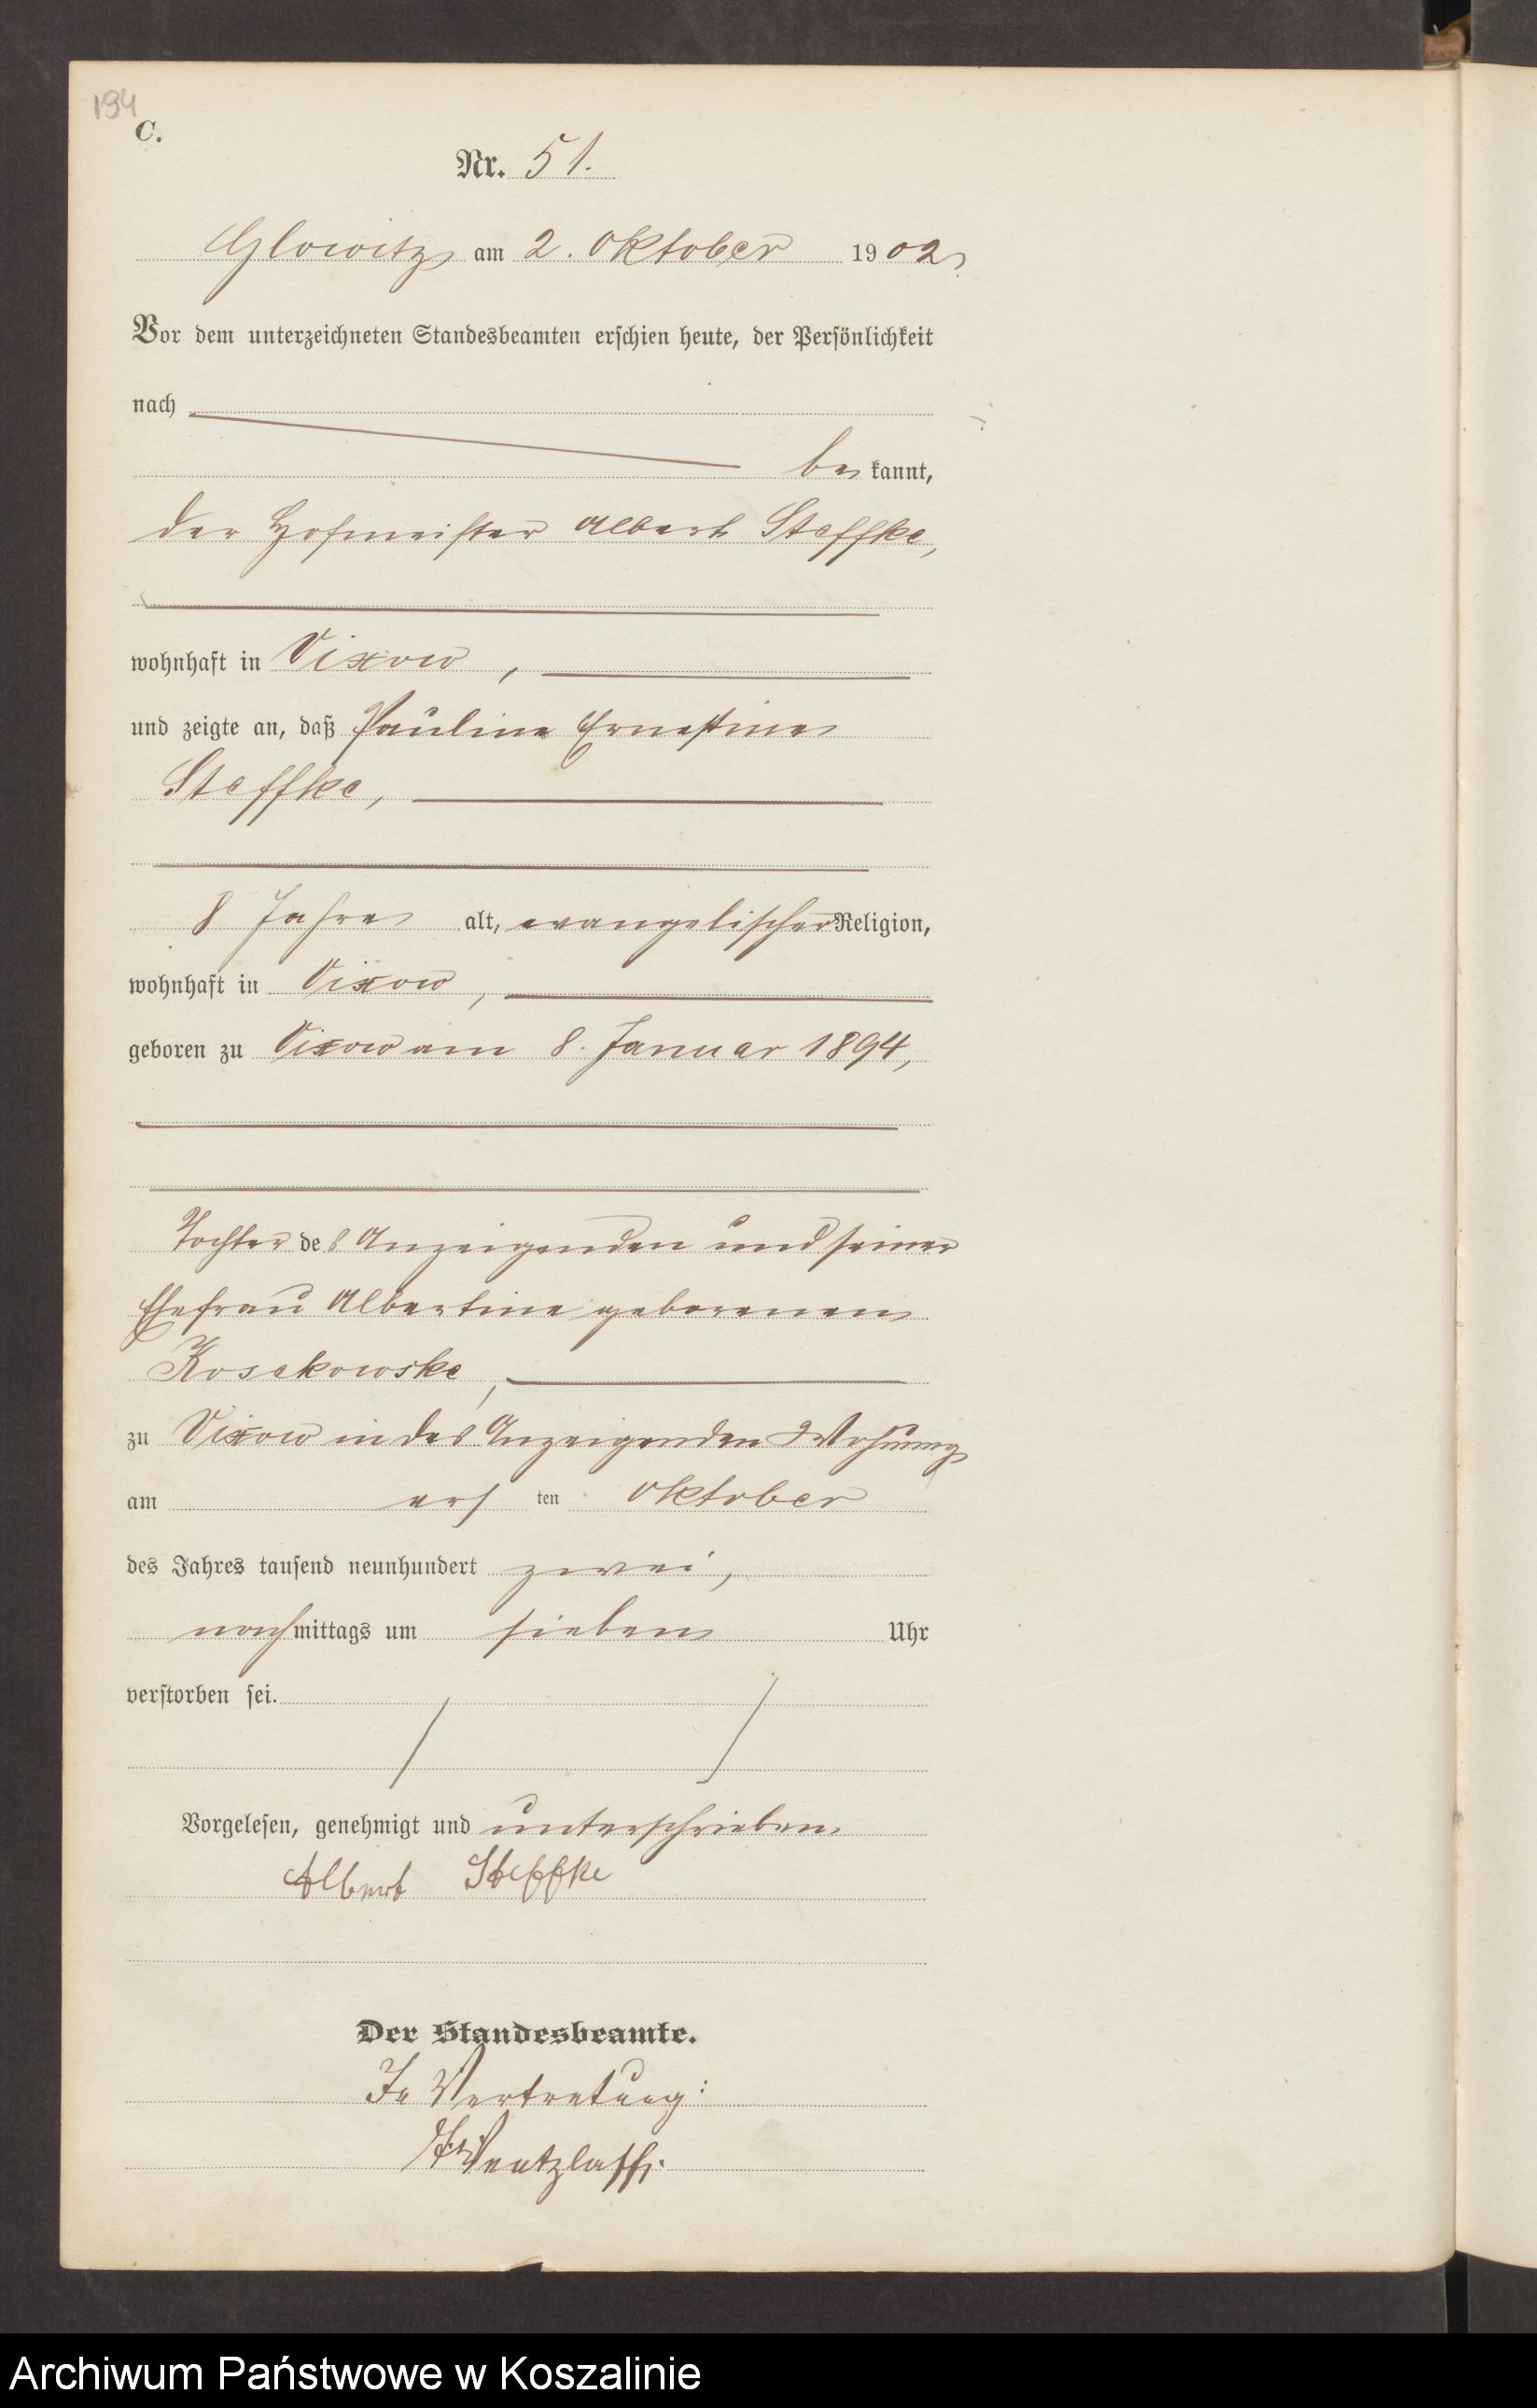 194
C.
Nr. 51.
Glowitz am 2. Oktober 1902
Vor dem unterzeichneten Standesbeamten erschien heute, der Persönlichkeit
nach
be kannt,
der Hofmeister Albert Steffke,
wohnhaft in Vixow,
und zeigte an, daß Pauline Ernestine
Steffke,
8 Jahre alt, evangelischer Religion,
wohnhaft in Vixow,
geboren zu Vixow am 8. Januar 1894,
Tochter des Anzeigenden und seiner
Ehefrau Albertine geborenen
Kosakowske,
zu Vixow in des Anzeigenden Wohnung
am ersten Oktober
des Jahres tausend neunhundert zwei,
nachmittags um sieben Uhr
verstorben sei.
Vorgelesen, genehmigt und unterschrieben.
Albert Steffke
Der Standesbeamte.
In Vertretung:
Wentzlaff.
Archiwum Państwowe w Koszalinie